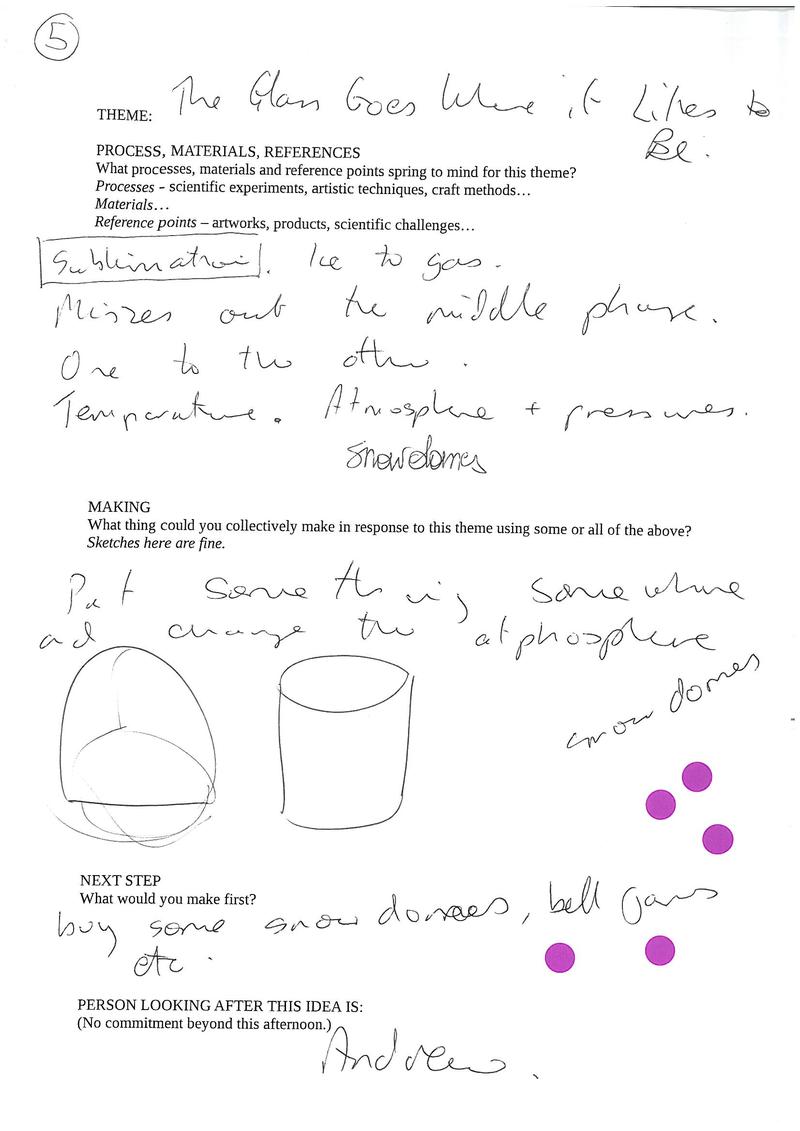 5
THEME: The Glass Goes Where it Likes to
Be.
PROCESS, MATERIALS, REFERENCES
What processes, materials and reference points spring to mind for this theme?
Processes - scientific experiments, artistic techniques, craft methods…
Materials…
Reference points – artworks, products, scientific challenges…
Sublimation. Ice to gas.
Misses out the middle phase.
One to the other.
Temperature. Atmosphere + pressures.
Snowdomes
MAKING
What thing could you collectively make in response to this theme using some or all of the above?
Sketches here are fine.
Put something somewhere
and change the atphosphere
snow domes
NEXT STEP
What would you make first?
buy some snow domes, bell jars
etc.
PERSON LOOKING AFTER THIS IDEA IS:
(No commitment beyond this afternoon.)
Andrew.